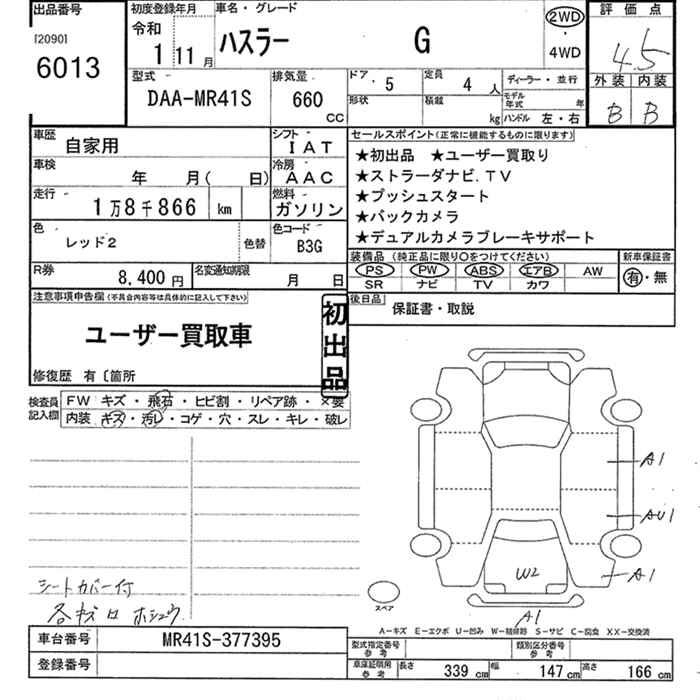 出品番号
[2090]
6013
初度登録年月
令和
1 11月
車名・グレード
ハスラー G
2WD
・
4WD
評価点
4.5
外装 内装
B B
型式
DAA-MR41S
排気量
660
CC
ドア
. 5
定員
4 人
ディーラー・並行
形状
積載
kg
モデル年式 年
ハンドル 左・右
車歴
自家用
シフト
IAT
車検
年 月( 日)
冷房
AAC
走行
1万8千866 km
燃料
ガソリン
色
レッド2
色替
色コード
B3G
R券
8,400円
名変通知期限
月 日
セールスポイント(正常に機能するものに限ります)
★初出品 ★ユーザー買取り
★ストラーダナビ.TV
★プッシュスタート
★バックカメラ
★デュアルカメラブレーキサポート
装備品 (純正品に限り○をつけてください)
PS PW ABS エアB AW
SR ナビ TV カワ
新車保証書
有・無
後日品
保証書・取説
注意事項申告欄(不具合内容等は具体的に記入して下さい)
ユーザー買取車
初出品
修復歴 有〔箇所
検査員
記入欄
FW キズ・飛石・ヒビ割・リペア跡・×要
内装 キズ・汚レ・コゲ・穴・スレ・キレ・破レ
A1
AU1
A1
W2
A1
スペア
シートカバー付
各キズロホシュウ
A-キズ E-エクボ U-凹み W-補修跡 S-サビ C-腐食 XX-交換済
車台番号
MR41S-377395
登録番号
型式指定番号
参考
類別区分番号
参考
車庫証明用
参考
長さ 339 cm 幅 147 cm 高さ 166 cm